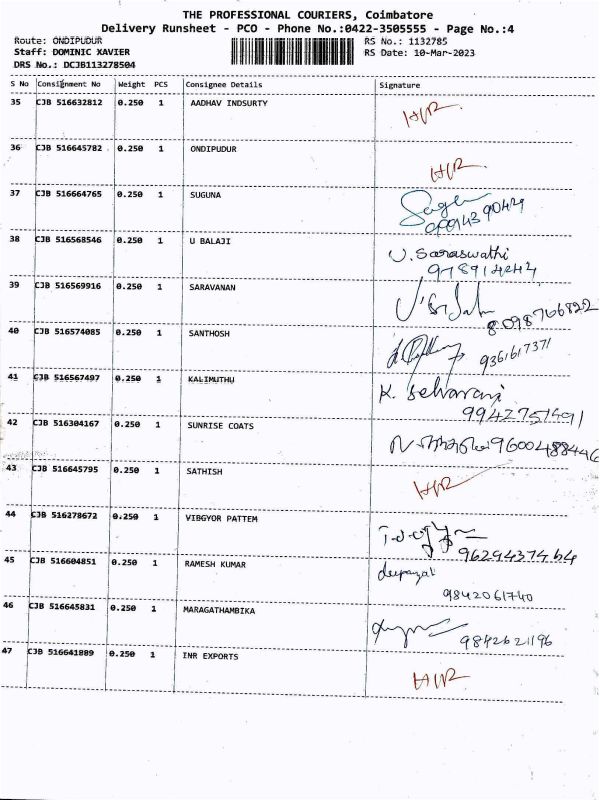 THE PROFESSIONAL COURIERS, Coimbatore
Delivery Runsheet - PCO - Phone No.:0422-3505555 - Page No.:4
Route: ONDIPUDUR RS No.: 1132785
Staff: DOMINIC XAVIER RS Date: 10-Mar-2023
DRS No.: DCJB113278504
S No Consignment No Weight PCS Consignee Details Signature
35 CJB 516632812 0.250 1 AADHAV INDSURTY
36 CJB 516645782 0.250 1 ONDIPUDUR
37 CJB 516664765 0.250 1 SUGUNA
38 CJB 516568546 0.250 1 U BALAJI U. Saraswathi
39 CJB 516569916 0.250 1 SARAVANAN 8098766822
40 CJB 516574085 0.250 1 SANTHOSH 9361617371
41 CJB 516567497 0.250 1 KALIMUTHU K. Selvarani
9942751491
42 CJB 516304167 0.250 1 SUNRISE COATS 9600488446
43 CJB 516645795 0.250 1 SATHISH
44 CJB 516278672 0.250 1 VIBGYOR PATTEM
9629437464
45 CJB 516604851 0.250 1 RAMESH KUMAR
9842061740
46 CJB 516645831 0.250 1 MARAGATHAMBIKA 9842621196
47 CJB 516641889 0.250 1 INR EXPORTS